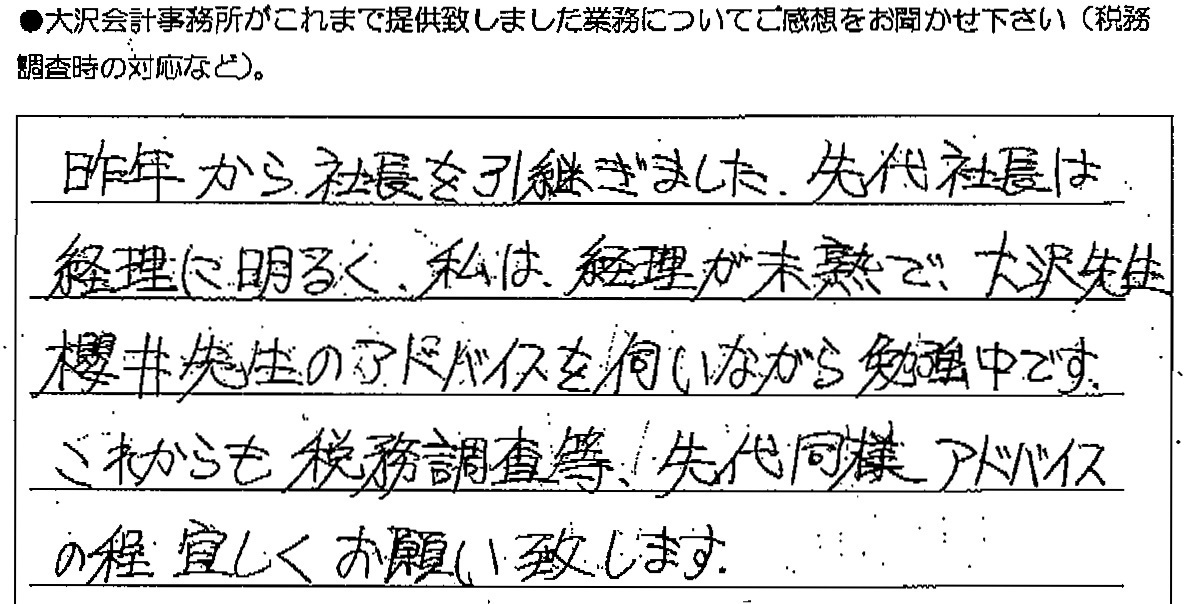 ●大沢会計事務所がこれまで提供致しました業務についてご感想をお聞かせ下さい（税務
調査時の対応など）。
昨年から社長を引継ぎました。先代社長は
経理に明るく、私は、経理が未熟で、大沢先生
櫻井先生のアドバイスを伺いながら勉強中です。
これからも税務調査等、先代同様アドバイス
の程宜しくお願い致します。